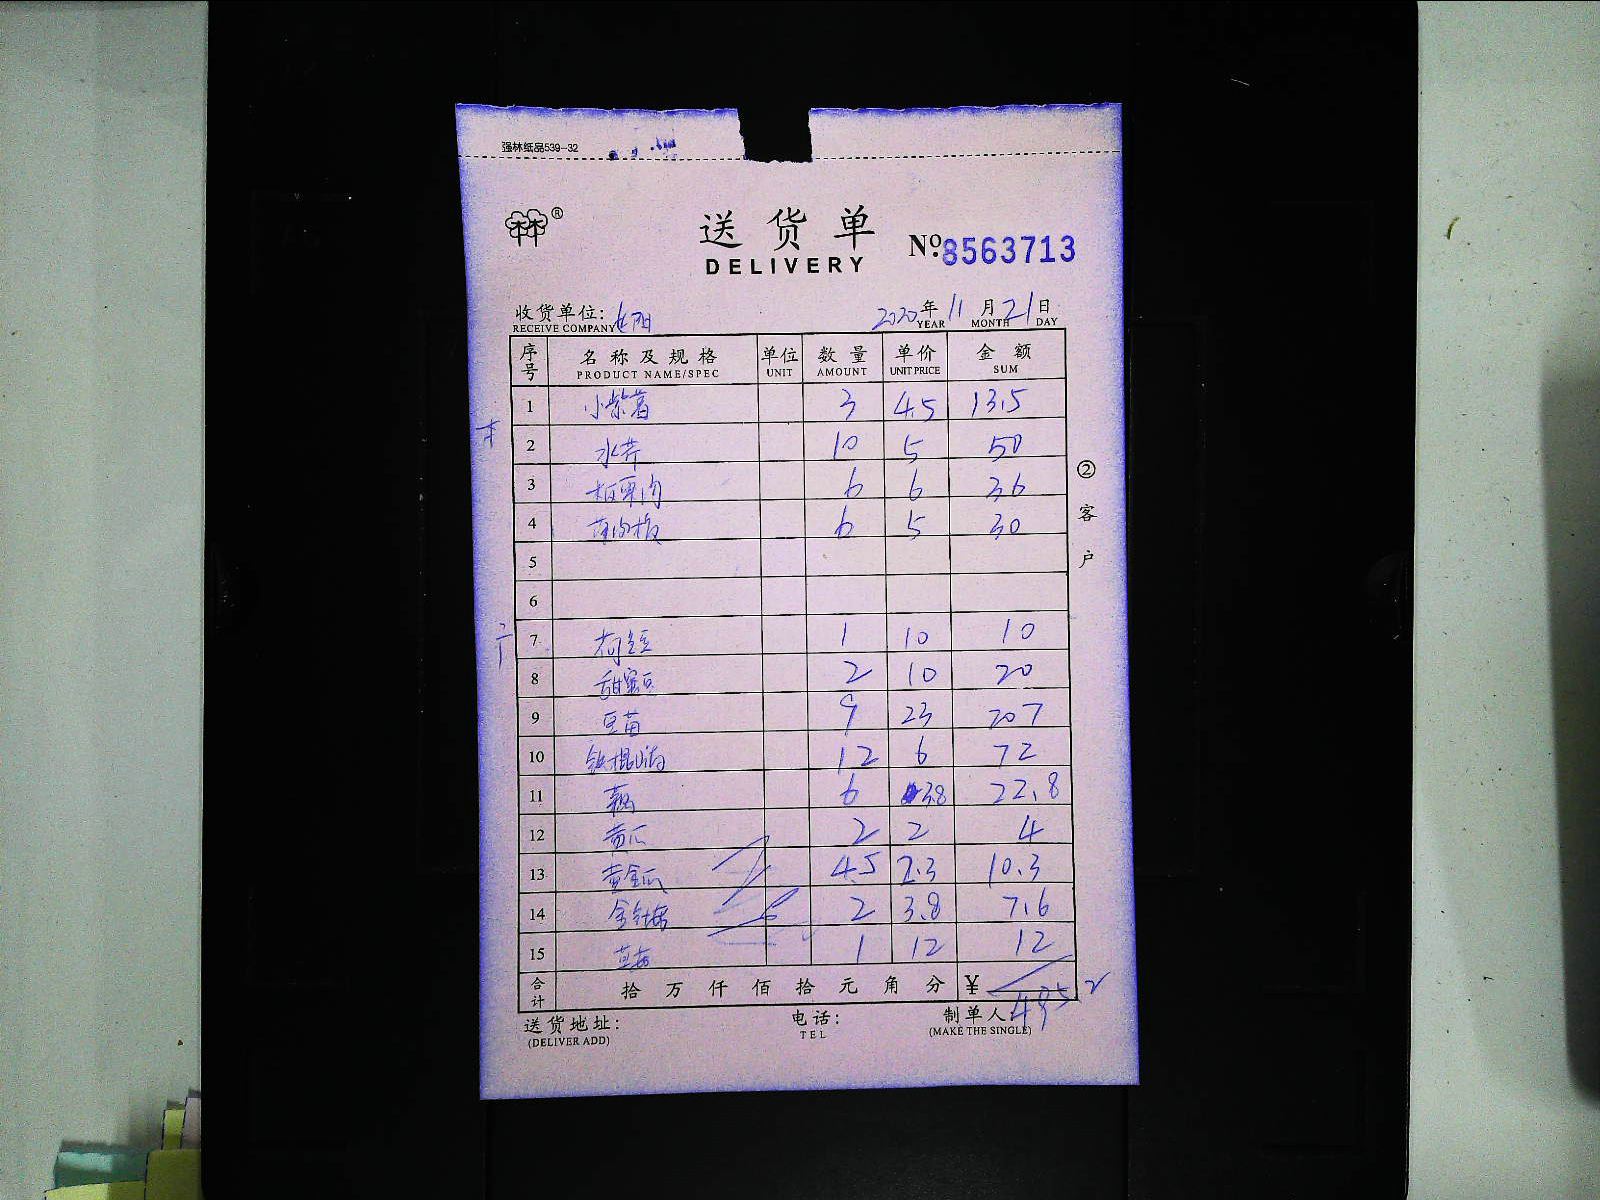 强林纸品539-32
林®
送货单
DELIVERY
№:8563713
收货单位:
RECEIVE COMPANY
2020年11月21日
YEAR MONTH DAY
序号 名称及规格 单位 数量 单价 金额
PRODUCT NAME/SPEC UNIT AMOUNT UNIT PRICE SUM
1 小紫薯 3 4.5 13.5
2 水芹 10 5 50
3 板栗肉 6 6 36
4 6 5 30
5
6
7 荷兰豆 1 10 10
8 甜蜜豆 2 10 20
9 豆苗 9 23 207
10 铁棍山药 12 6 72
11 藕 6 3.8 22.8
12 黄瓜 2 2 4
13 黄金瓜 4.5 2.3 10.3
14 金针菇 2 3.8 7.6
15 1 12 12
合计 拾 万 仟 佰 拾 元 角 分 ¥ 495.2
送货地址: 电话: 制单人:
(DELIVER ADD) TEL (MAKE THE SINGLE)
②客户